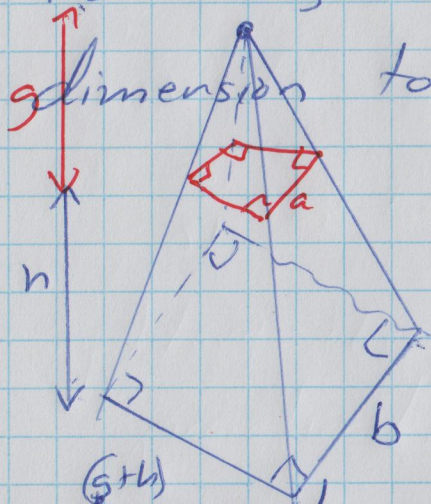 g dimension to
a
h
b
(g+h)